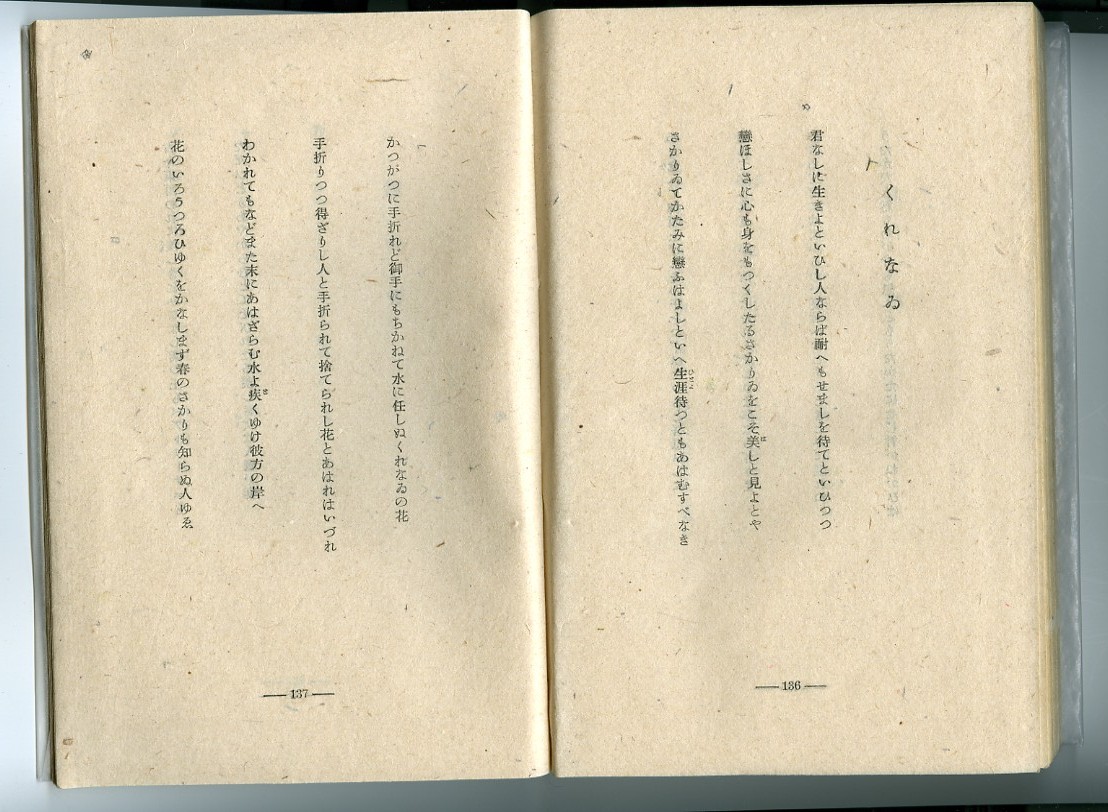 くれなゐ
君なしに生きよといひし人ならば耐へもせましを待てといひつつ
戀ほしさに心も身をもつくしたるさかりゐをこそ美しと見よとや
さかりゐてかたみに戀ふはよしといへ生涯待つともあはむすべなき
—136—
かつがつに手折れど御手にもちかねて水に任しぬくれなゐの花
手折りつつ得ざりし人と手折られて捨てられし花とあはれはいづれ
わかれてもなどまた末にあはざらむ水よ疾くゆけ彼方の岸へ
花のいろうつろひゆくをかなしまず春のさかりも知らぬ人ゆゑ
—137—